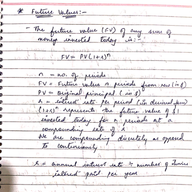 * Future Values:-
- The future value (FV) of any sum of
money invested today is :-
FV = PV(1+r)^n
n = no. of periods
FV = Future value n periods from now (in $)
PV = original principal (in $)
r = interest rate per period (in decimal form)
(1+r)^n represents the future value of $1
invested today for n periods at a
compounding rate of r.
We are compounding discretely as opposed
to continuously.
r = annual interest rate ÷ number of times
interest paid per year